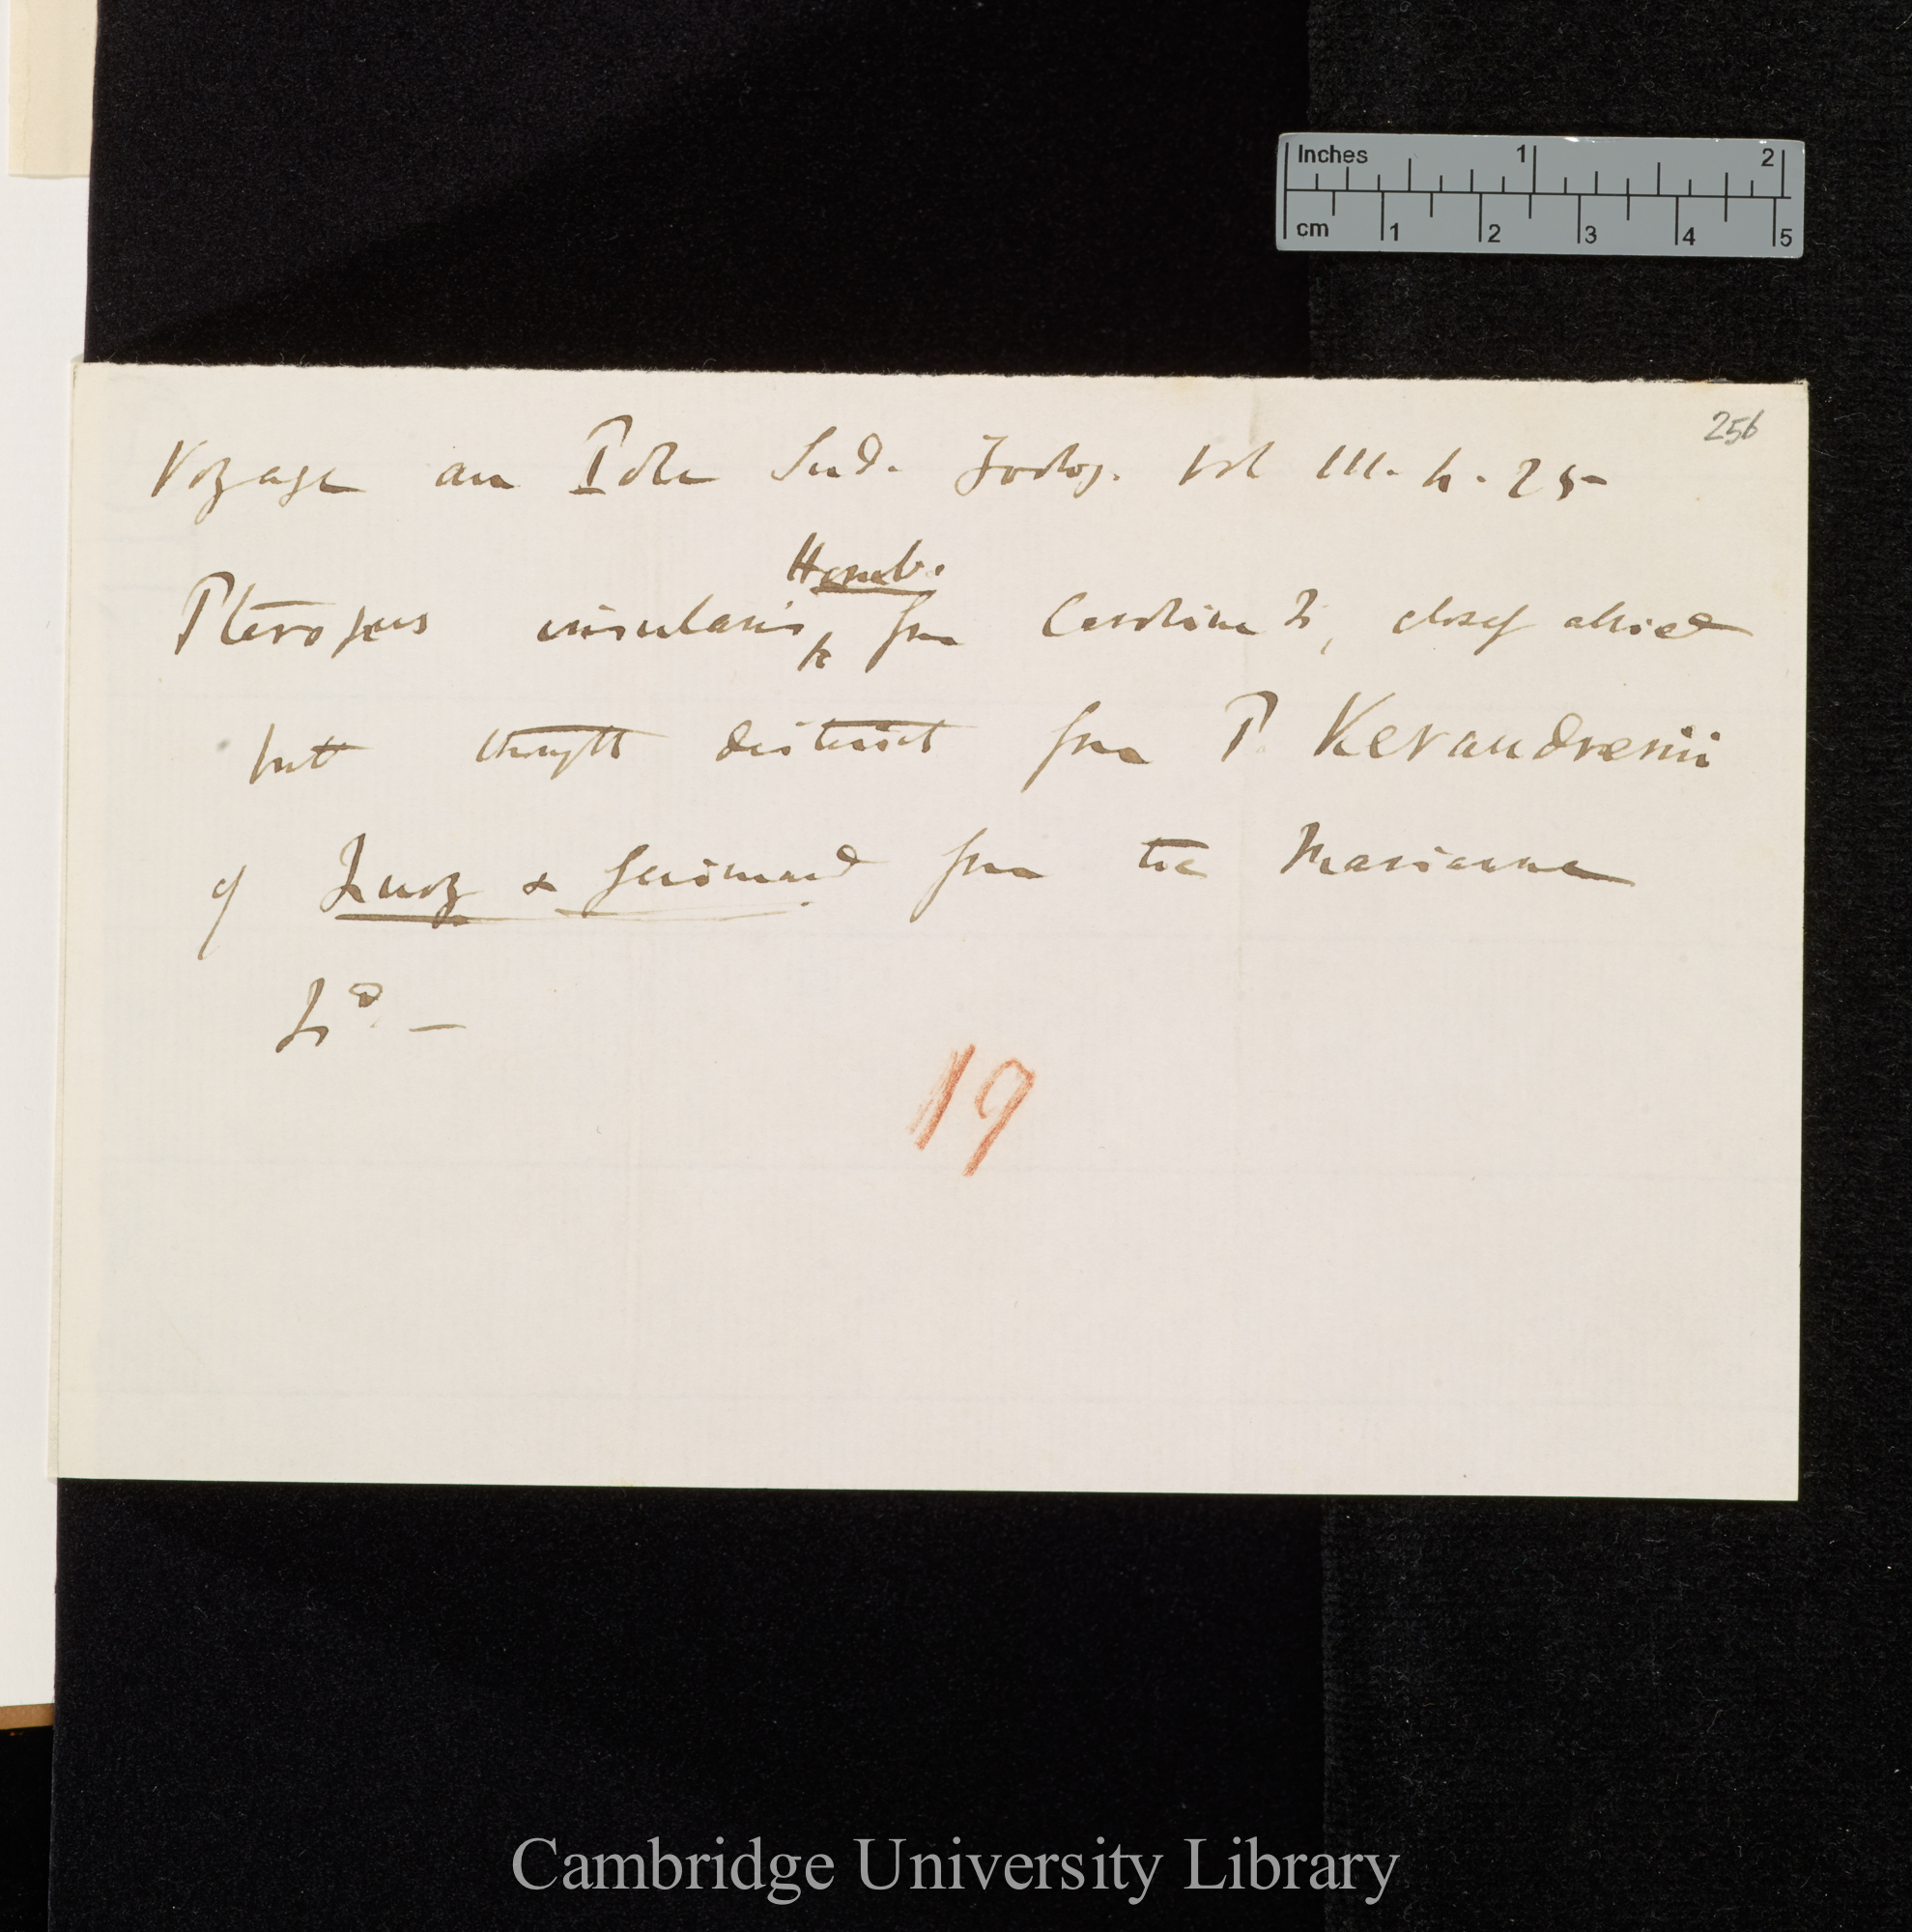 Inches 1 2
cm 1 2 3 4 5
256
Voyage au Pole Sud. Zoolog. Vol III. p. 25
Homb.
Pteropus insularis, from Caroline Is, closely allied
but thought distinct from P. Keraudrenii
of Quoy & Gaimard from the Marianne
Isd. —
19
Cambridge University Library